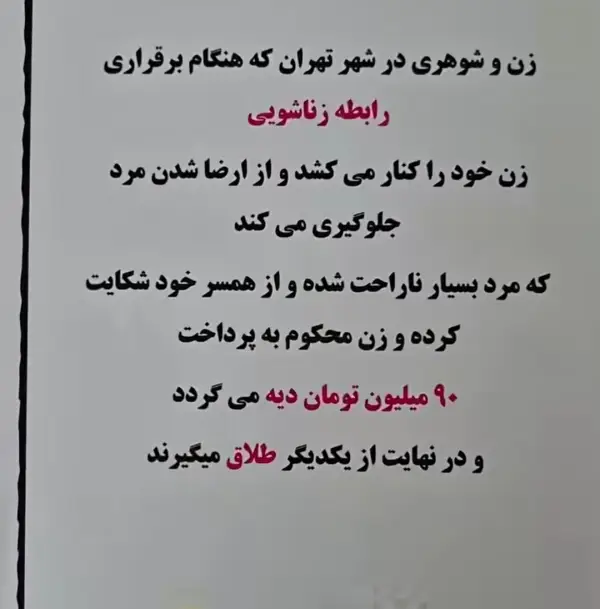 زن و شوهری در شهر تهران که هنگام برقراری
رابطه زناشویی
زن خود را کنار می کشد و از ارضا شدن مرد
جلوگیری می کند
که مرد بسیار ناراحت شده و از همسر خود شکایت
کرده و زن محکوم به پرداخت
۹۰ میلیون تومان دیه می گردد
و در نهایت از یکدیگر طلاق میگیرند